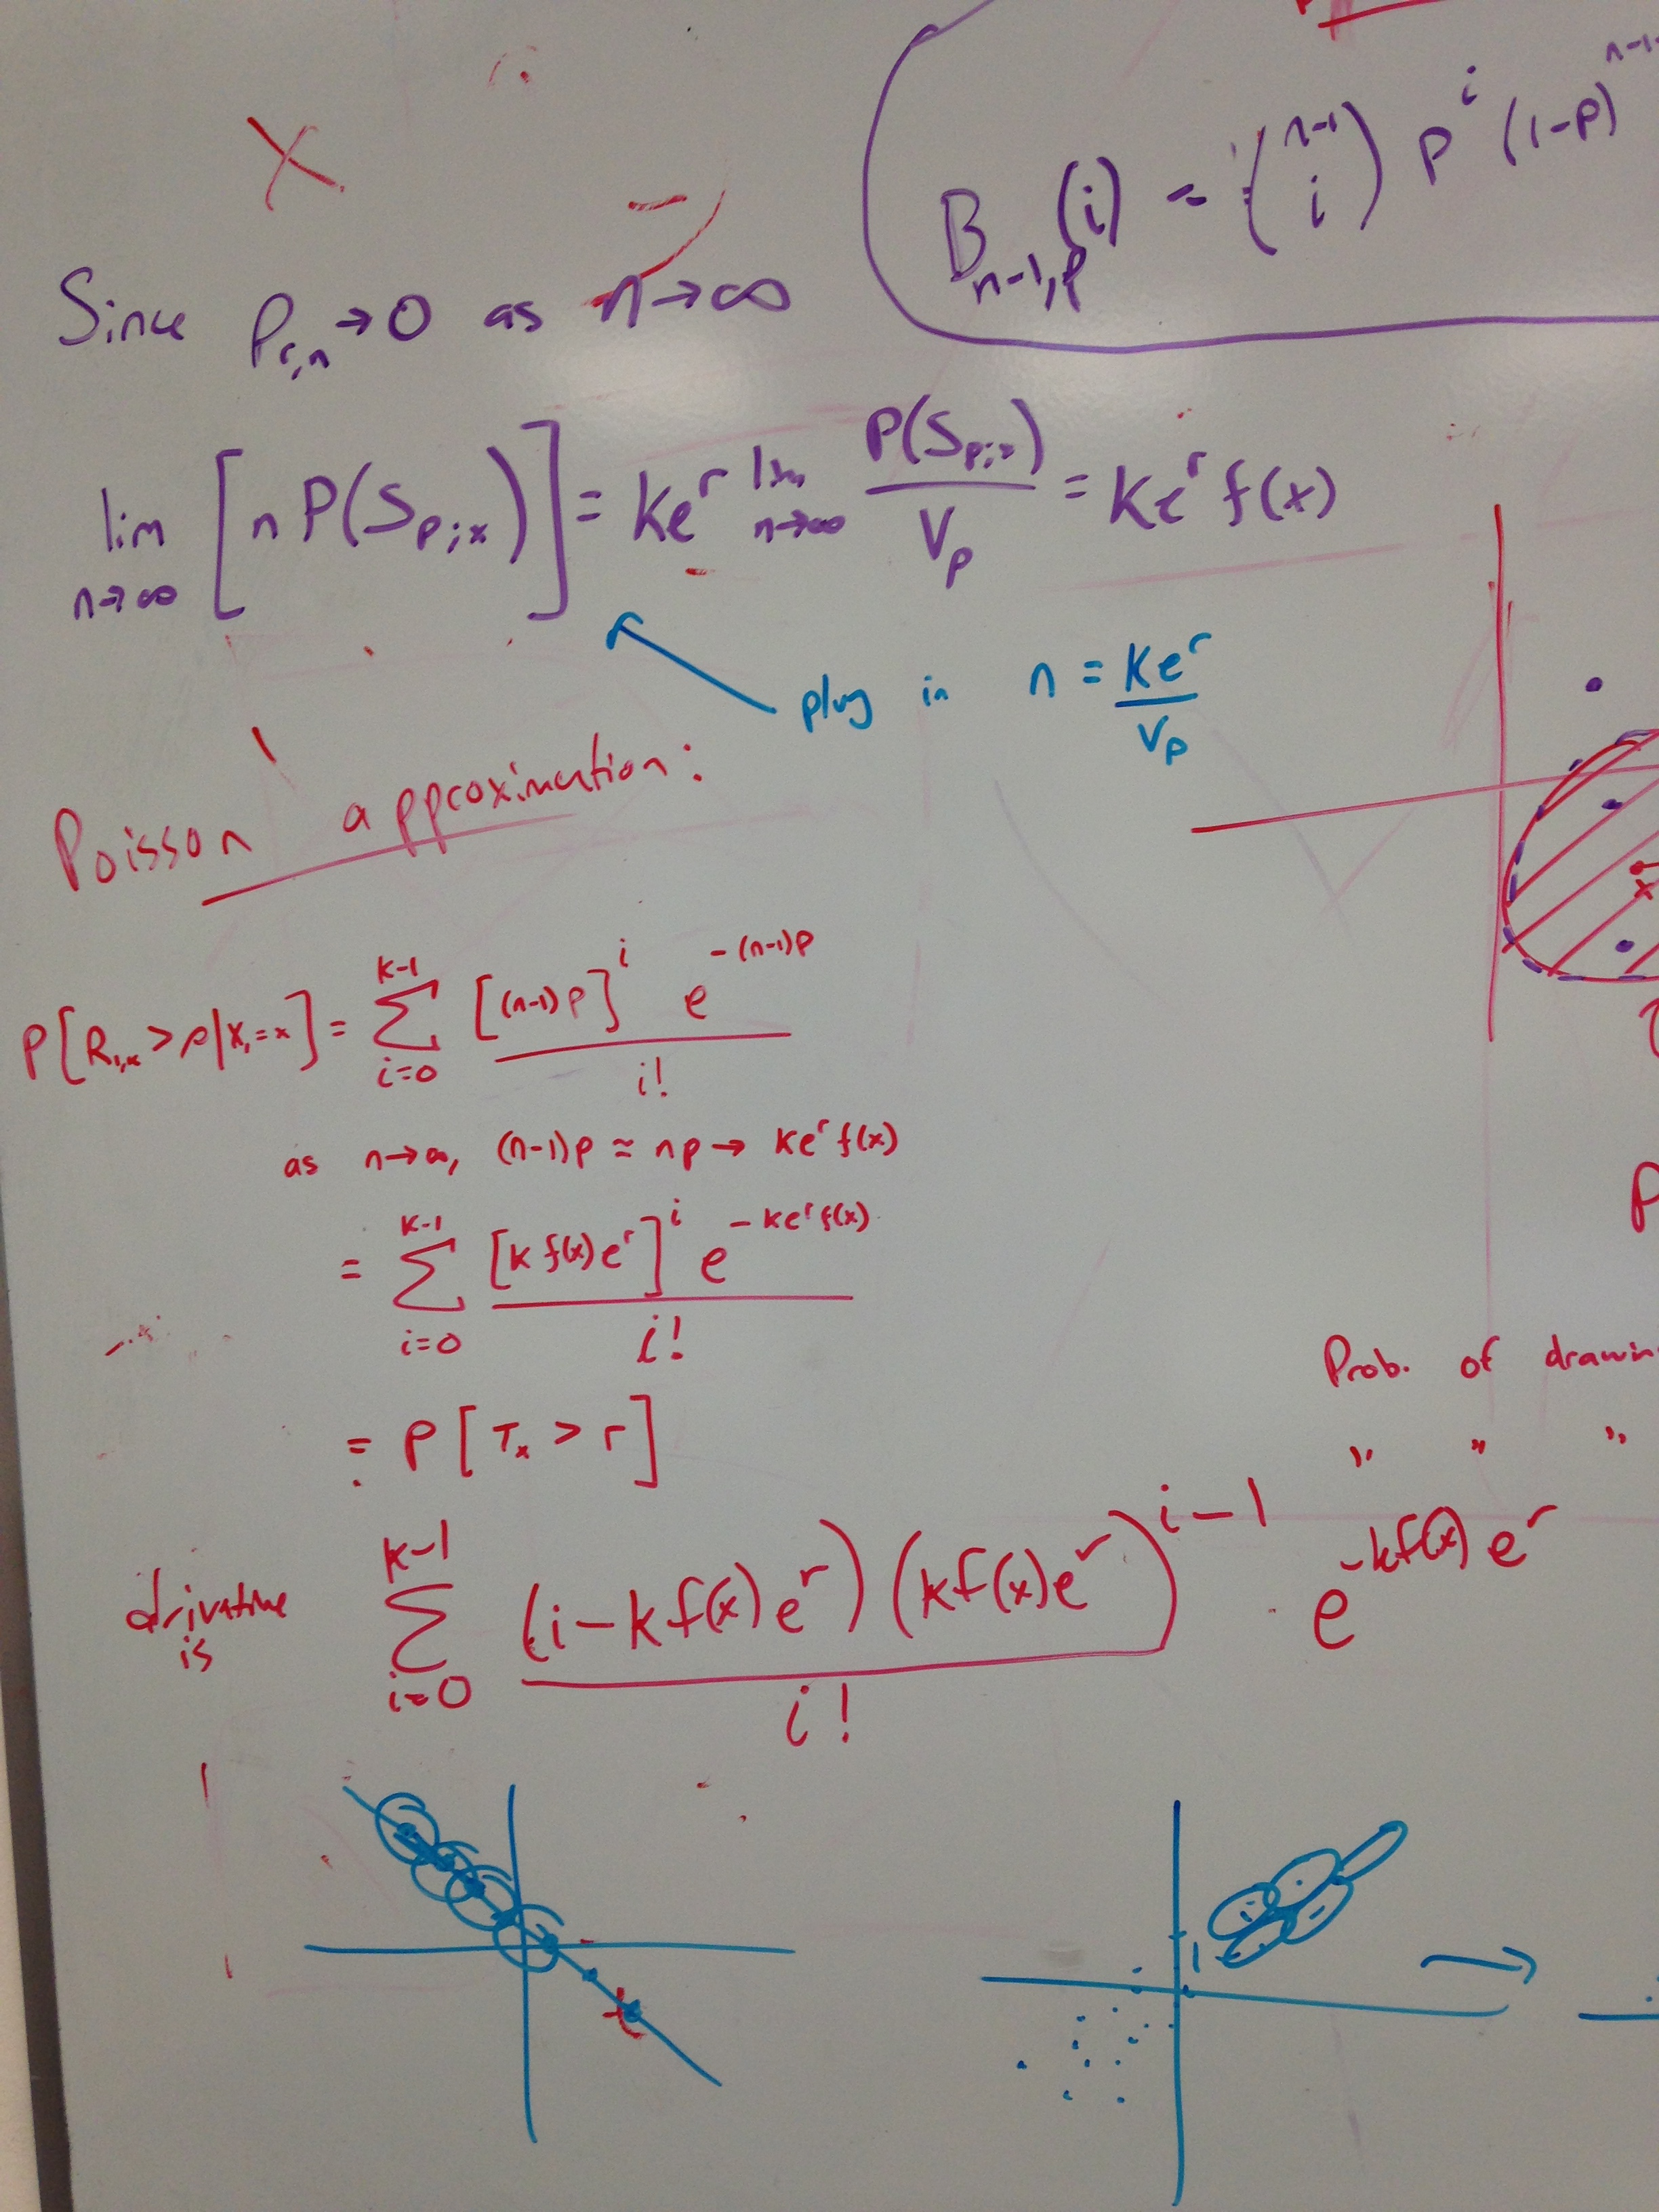 B_{n-1,p}(i) ≈ \binom{n-1}{i} p^i (1-p)^{n-1-
Since P_{r,n} → 0 as n → ∞
lim_{n→∞} [n P(S_{ρ;x})] = ke^r lim_{n→∞} \frac{P(S_{ρ;x})}{V_ρ} = ke^r f(x)
plug in n = \frac{ke^r}{V_ρ}
Poisson approximation:
P[R_{1,k} > ρ | X_1 = x] = \sum_{i=0}^{k-1} \frac{[(n-1)p]^i e^{-(n-1)p}}{i!}
as n→∞, (n-1)p ≈ np → ke^r f(x)
= \sum_{i=0}^{k-1} \frac{[k f(x) e^r]^i e^{-ke^r f(x)}}{i!}
= P[T_x > r]
Prob. of drawin
" " "
drivative is \sum_{i=0}^{k-1} \frac{(i-kf(x)e^r)(kf(x)e^r)^{i-1}}{i!} e^{-kf(x)e^r}
x
P
t